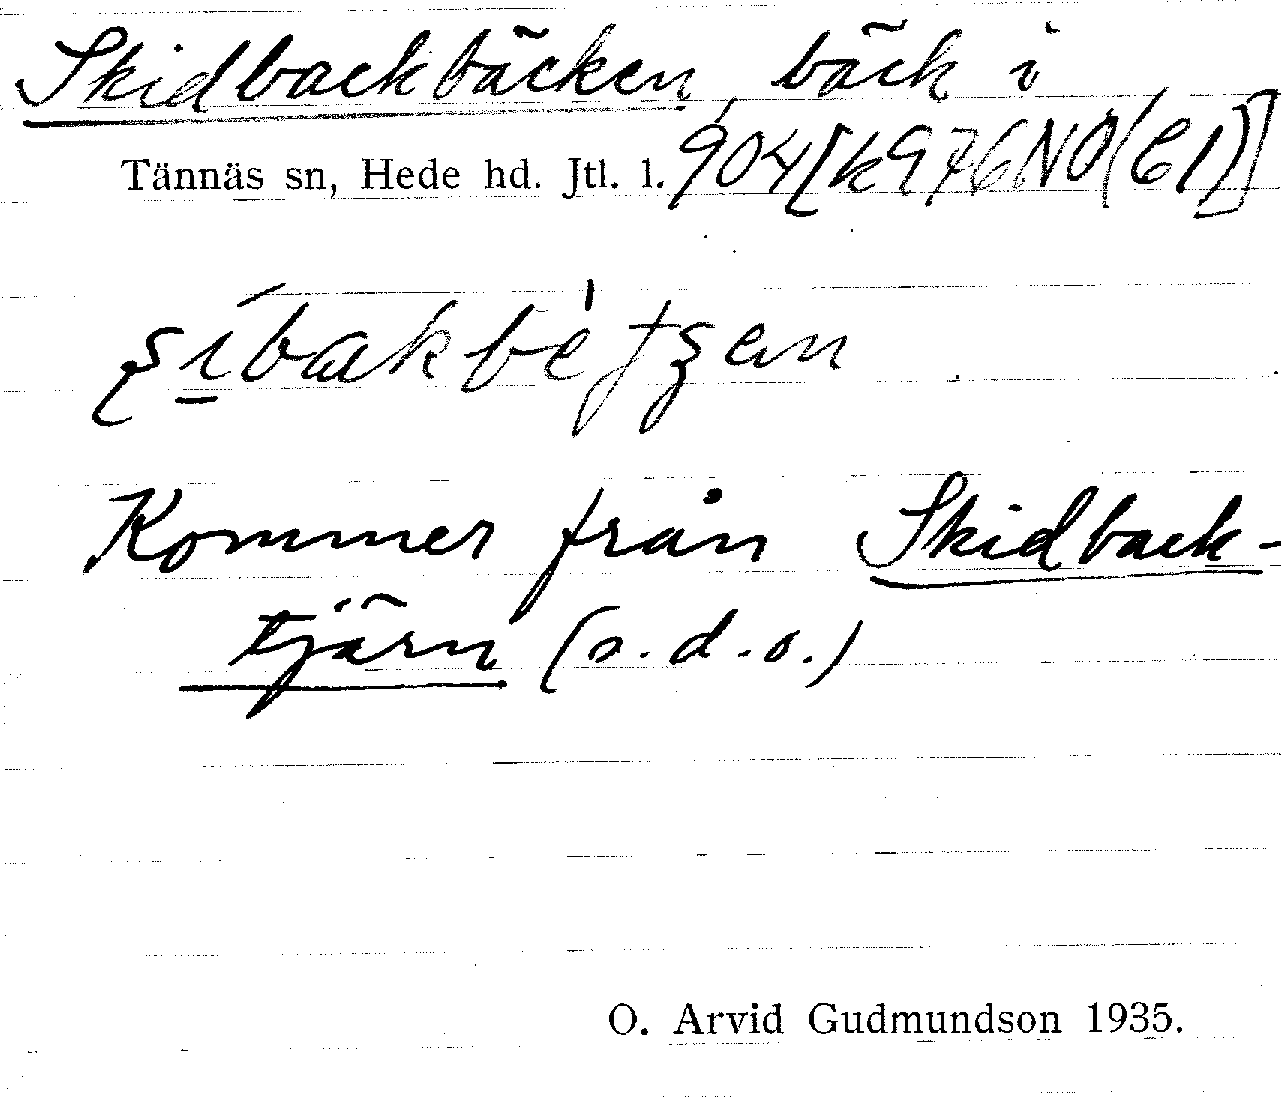 Skidbackbäcken, bäck i
Tännäs sn, Hede hd. Jtl. l. 904 [k 976 NO (C1)]
Kommer från Skidback-
tjärn (s.d.o.)
O. Arvid Gudmundson 1935.